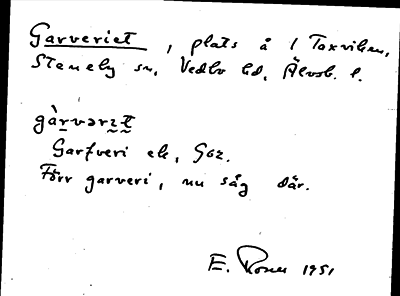 Garveriet, plats å 1 Taxviken,
Steneby sn, Vedbo hd, Älvsb. l.
gàrvərɪt
Garfveri ek, Goz.
Förr garveri, nu såg där.
E. 1951